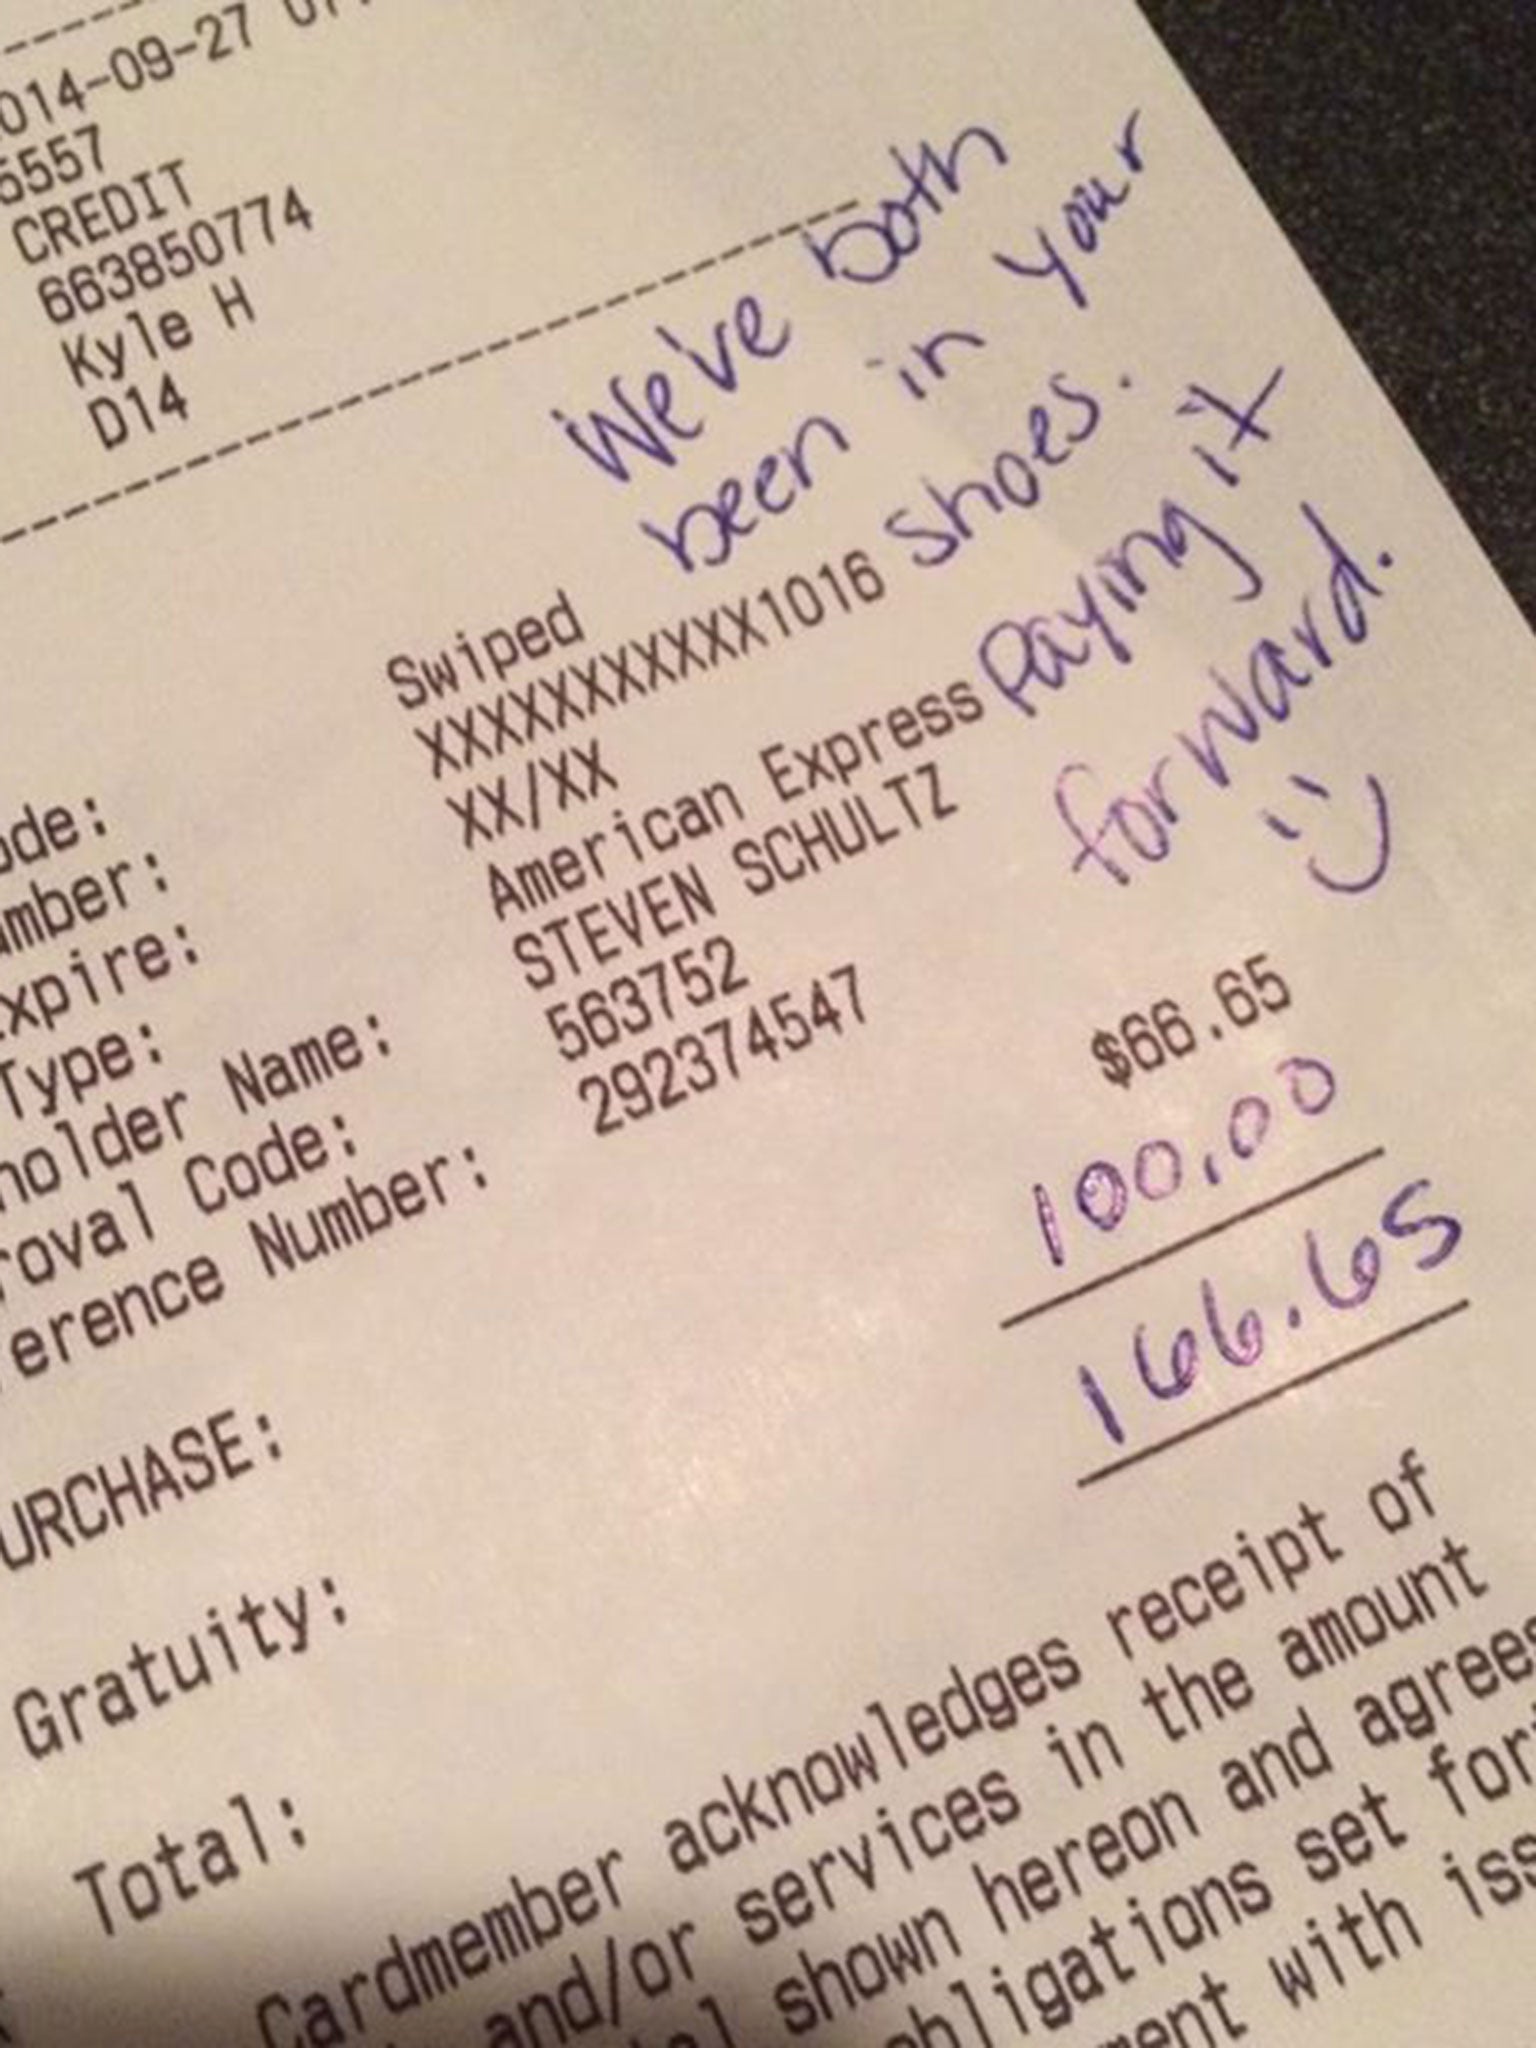 014-09-27
5557
CREDIT
663850774
Kyle H
D14
We've both
been in your
shoes.
Paying it
forward.
Swiped
XXXXXXXXXXX1016
XX/XX
American Express
STEVEN SCHULTZ
563752
292374547
ode:
umber:
xpire:
Type:
holder Name:
roval Code:
erence Number:
URCHASE: $66.65
Gratuity: 100.00
Total: 166.65
Cardmember acknowledges receipt of
and/or services in the amount
shown hereon and agrees
obligations set
with